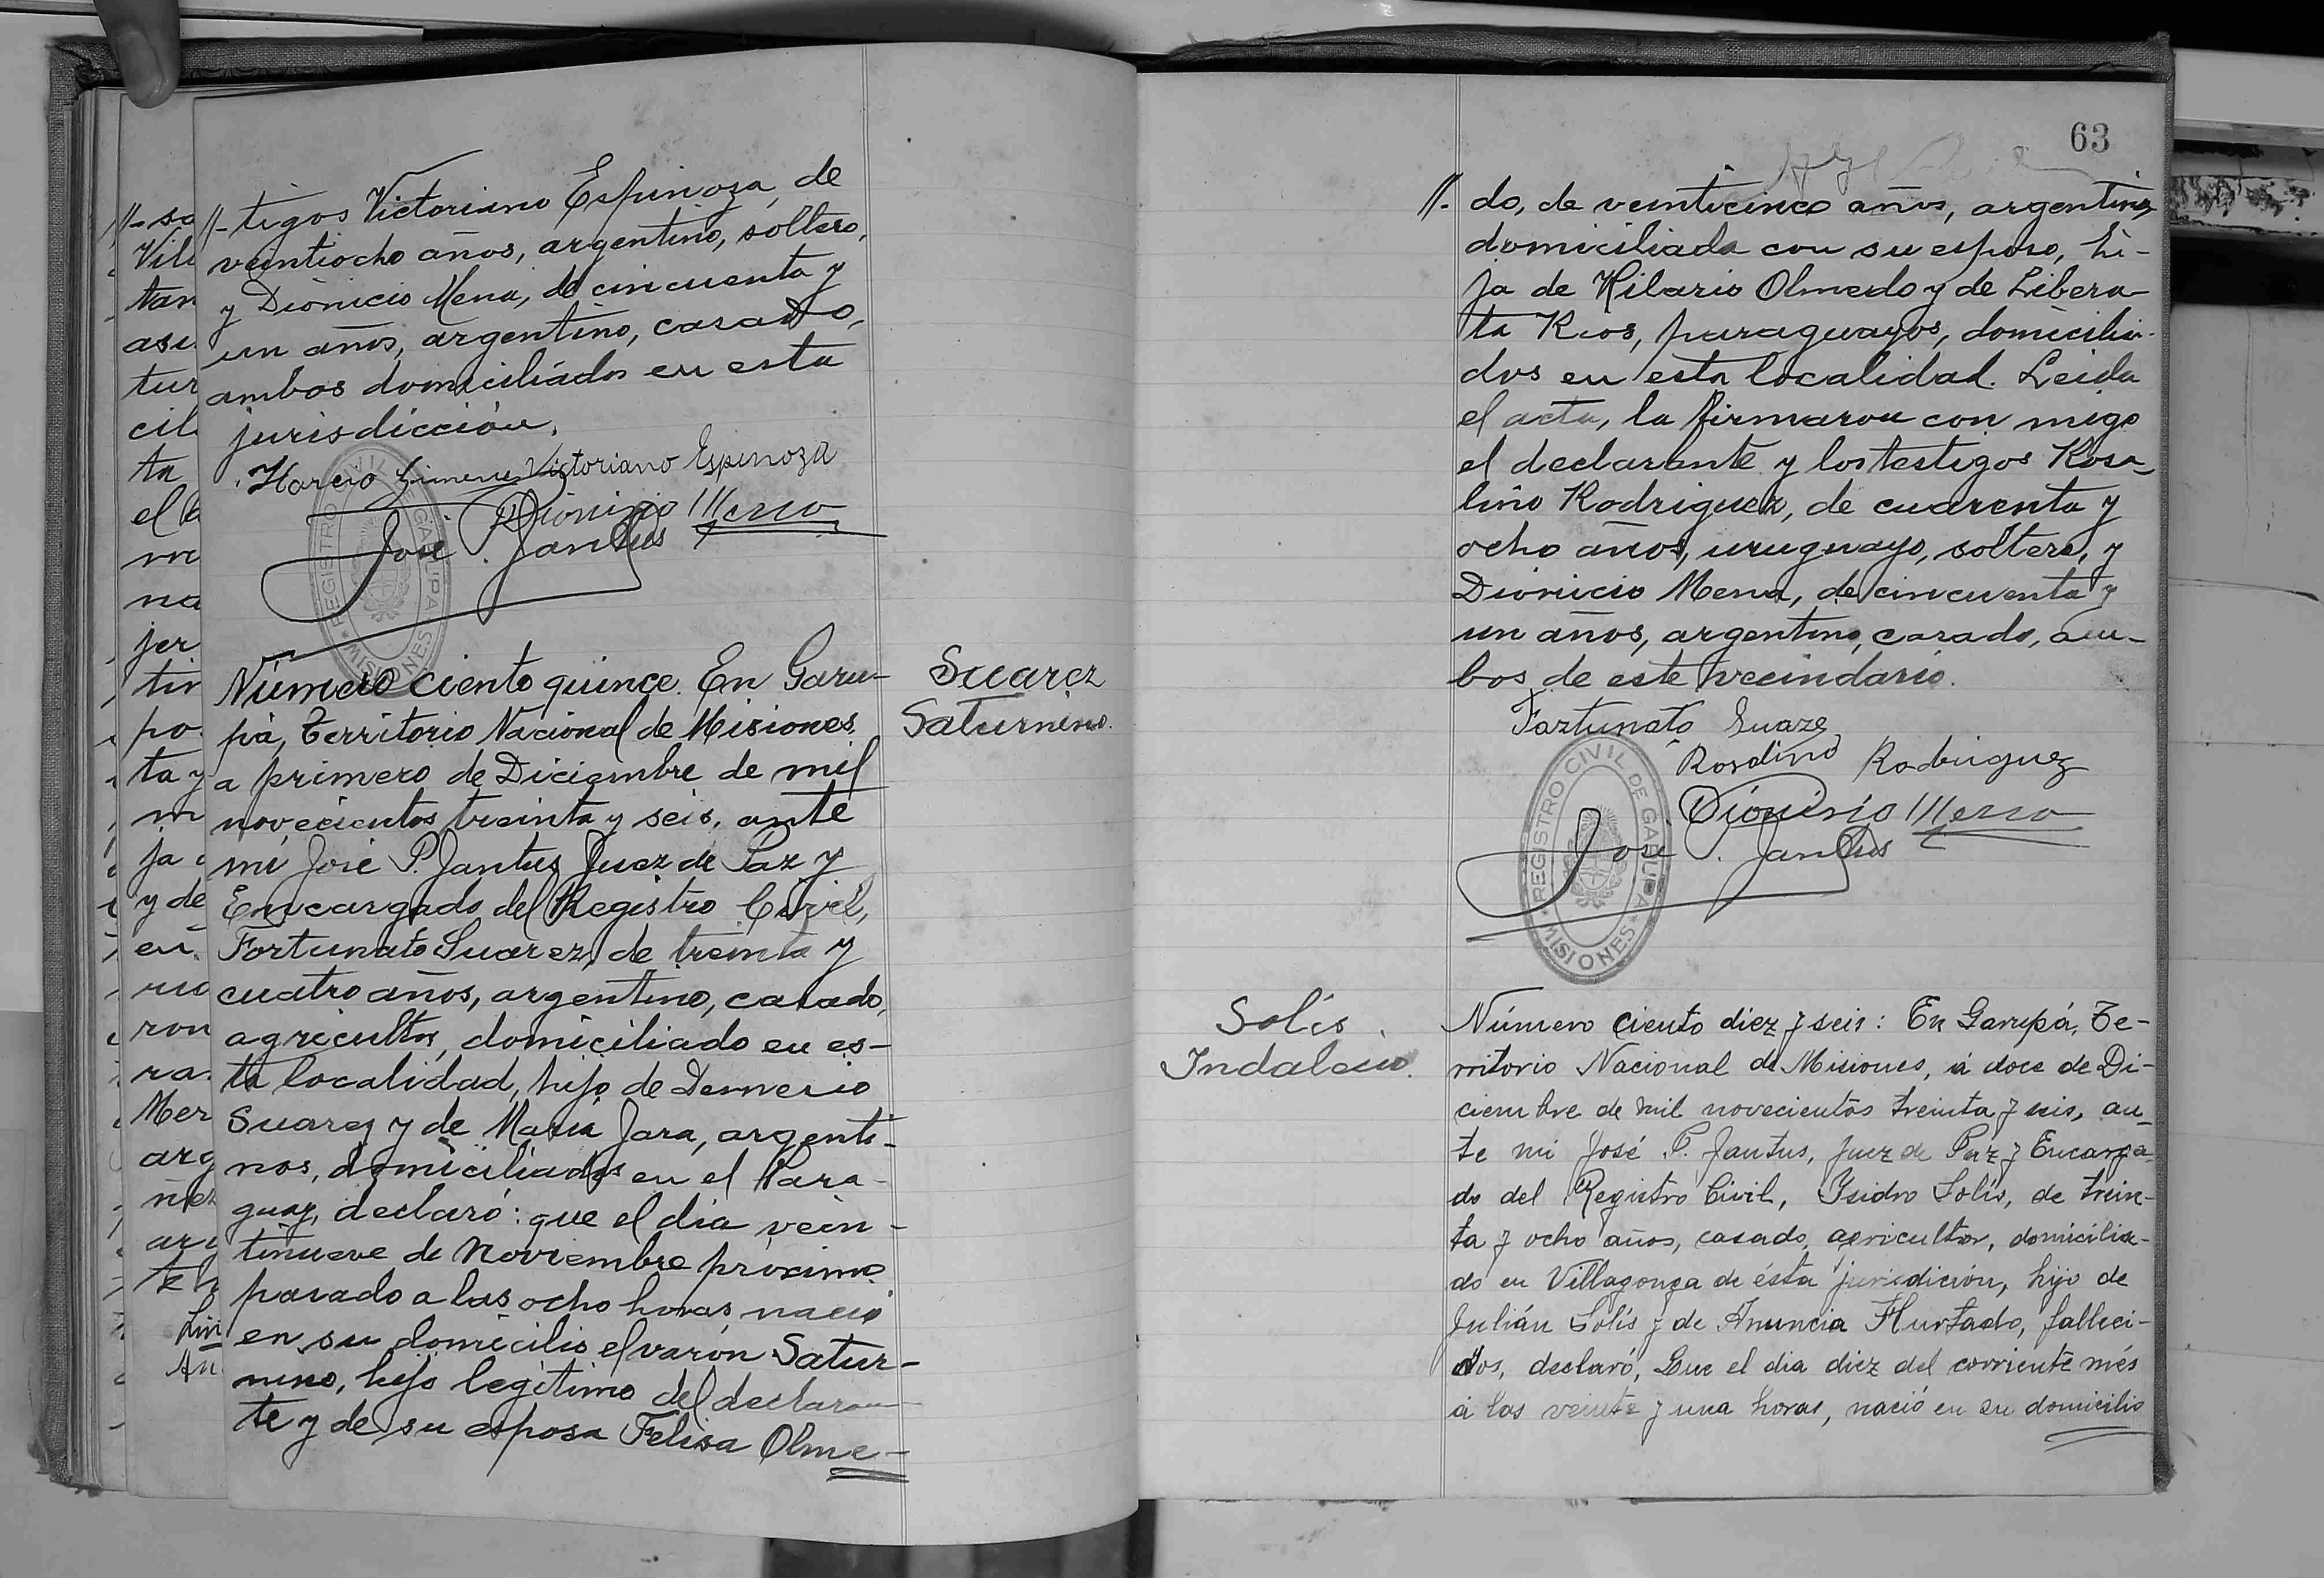 //-tigos Victoriano Espinoza, de
veintiocho años, argentino, soltero,
y Dionicio Mena, de cincuenta y
un años, argentino, casado,
ambos domiciliados en esta
jurisdicción.
Victoriano Espinoza
Dionisio Mena
José P. Jantus
REGISTRO CIVIL DE GARUPA
MISIONES
Suarez
Saturnino.
Número ciento quince. En Garu-
pá, Territorio Nacional de Misiones
a primero de Diciembre de mil
novecientos treinta y seis, ante
mí José P. Jantus Juez de Paz y
Encargado del Registro Civil,
Fortunato Suarez, de treinta y
cuatro años, argentino, casado,
agricultor, domiciliado en es-
ta localidad, hijo de Demerio
Suarez y de María Jara, argenti-
nos, domiciliados en el Para-
guay, declaró: que el día vein-
tinueve de Noviembre próximo
pasado a las ocho horas, nació
en su domicilio el varón Satur-
nino, hijo legítimo del declaran-
te y de su esposa Felisa Olme-
//-sa
Vill
tan
asi
tur
cil
ta
el
me
na
jer
tin
po
ta y
m
ja
y de
en
ru
ron
ra
Mer
arg
ñez
63
//. do, de veinticinco años, argentina,
domiciliada con su esposo, hi-
ja de Hilario Olmedo y de Libera-
ta Rios, paraguayos, domicilia-
dos en esta localidad. Leida
el acta, la firmaron con migo
el declarante y los testigos Rosa-
lino Rodriguez, de cuarenta y
ocho años, uruguayo, soltero, y
Dionicio Mena, de cincuenta y
un años, argentino, casado, am-
bos de este vecindario.
Fortunato Suarez
Rosalino Rodriguez
Dionisio Mena
José P. Jantus
REGISTRO CIVIL DE GARUPA
MISIONES
Solís
Indalecio.
Número ciento diez y seis: En Garupá, Te-
rritorio Nacional de Misiones, á doce de Di-
ciembre de mil novecientos treinta y seis, an-
te mi José P. Jantus, Juez de Paz y Encarga-
do del Registro Civil, Isidro Solís, de trein-
ta y ocho años, casado, agricultor, domicilia-
do en Villagonga de ésta jurisdición, hijo de
Julián Solís y de Anuncia Hurtado, falleci-
dos, declaró, Que el dia diez del corriente més
á las veinte y una horas, nació en su domicilio